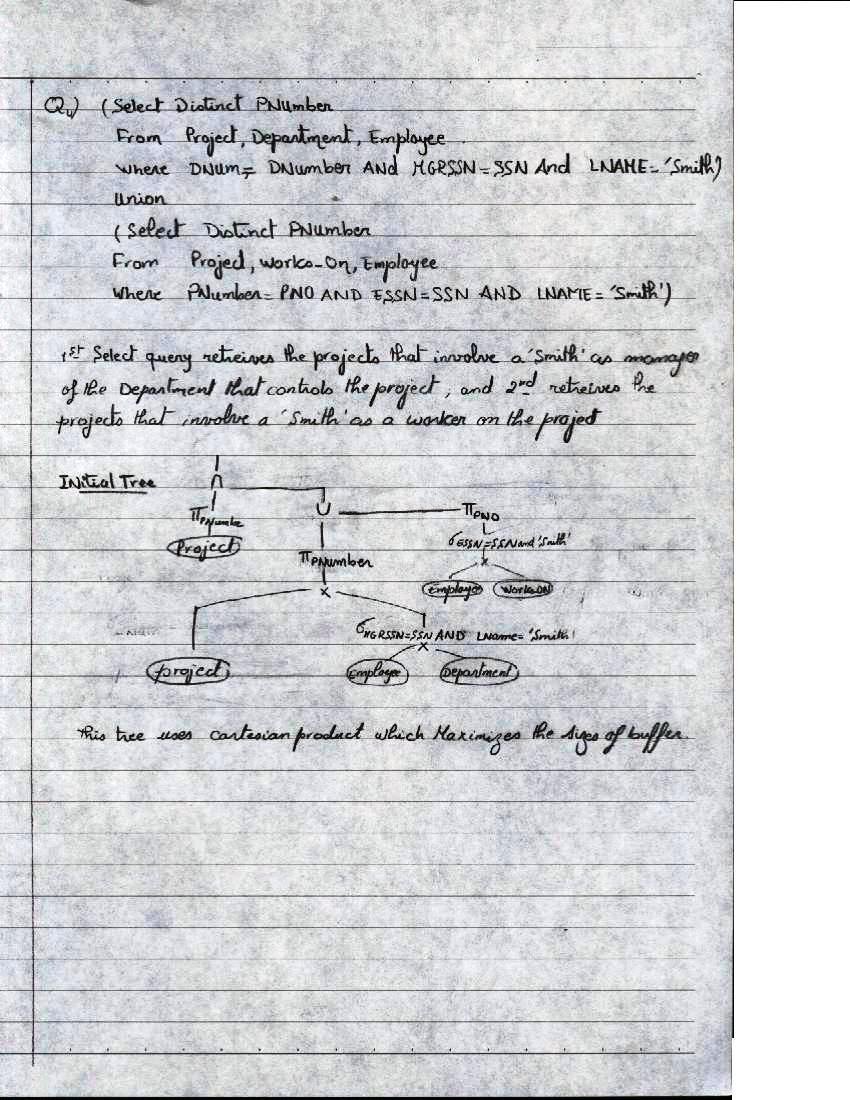 Q4) (Select Distinct PNumber
From Project, Department, Employee.
Where DNum= DNumber AND MGRSSN=SSN And LNAME='Smith')
Union
(Select Distinct PNumber
From Project, Works-On, Employee
Where PNumber= PNO AND ESSN=SSN AND LNAME='Smith')
1st Select query retreives the projects that involve a 'Smith' as manager
of the Department that controls the project, and 2nd retreives the
projects that involve a 'Smith' as a worker on the project
INitial Tree ∩
πPNumbe ∪ πPNO
Project σESSN=SSN and 'Smith'
πPNumber ×
Employee WorksON
×
σMGRSSN=SSN AND Lname='Smith'
×
project Employee Department
This tree uses cartesian product which Maximizes the sizes of buffer.